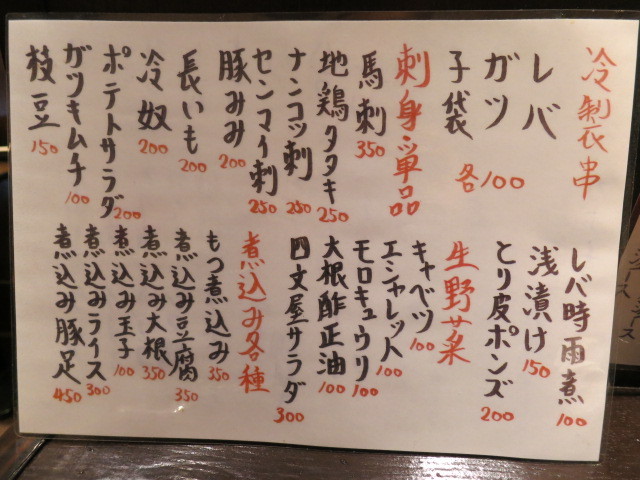 冷製串
レバ
ガツ
子袋
各100
刺身・単品
馬刺 350
地鶏タタキ 250
ナンコツ刺 250
センマイ刺 250
豚みみ 200
長いも 200
冷奴 200
ポテトサラダ 200
ガツキムチ 100
枝豆 150
レバ時雨煮 100
浅漬け 150
とり皮ポンズ 200
生野菜
キャベツ 100
エシャレット 100
モロキュウリ 100
大根酢正油 100
四文屋サラダ 300
煮込み各種
もつ煮込み 350
煮込み豆腐 350
煮込み大根 350
煮込み玉子 100
煮込みライス 300
煮込み豚足 450